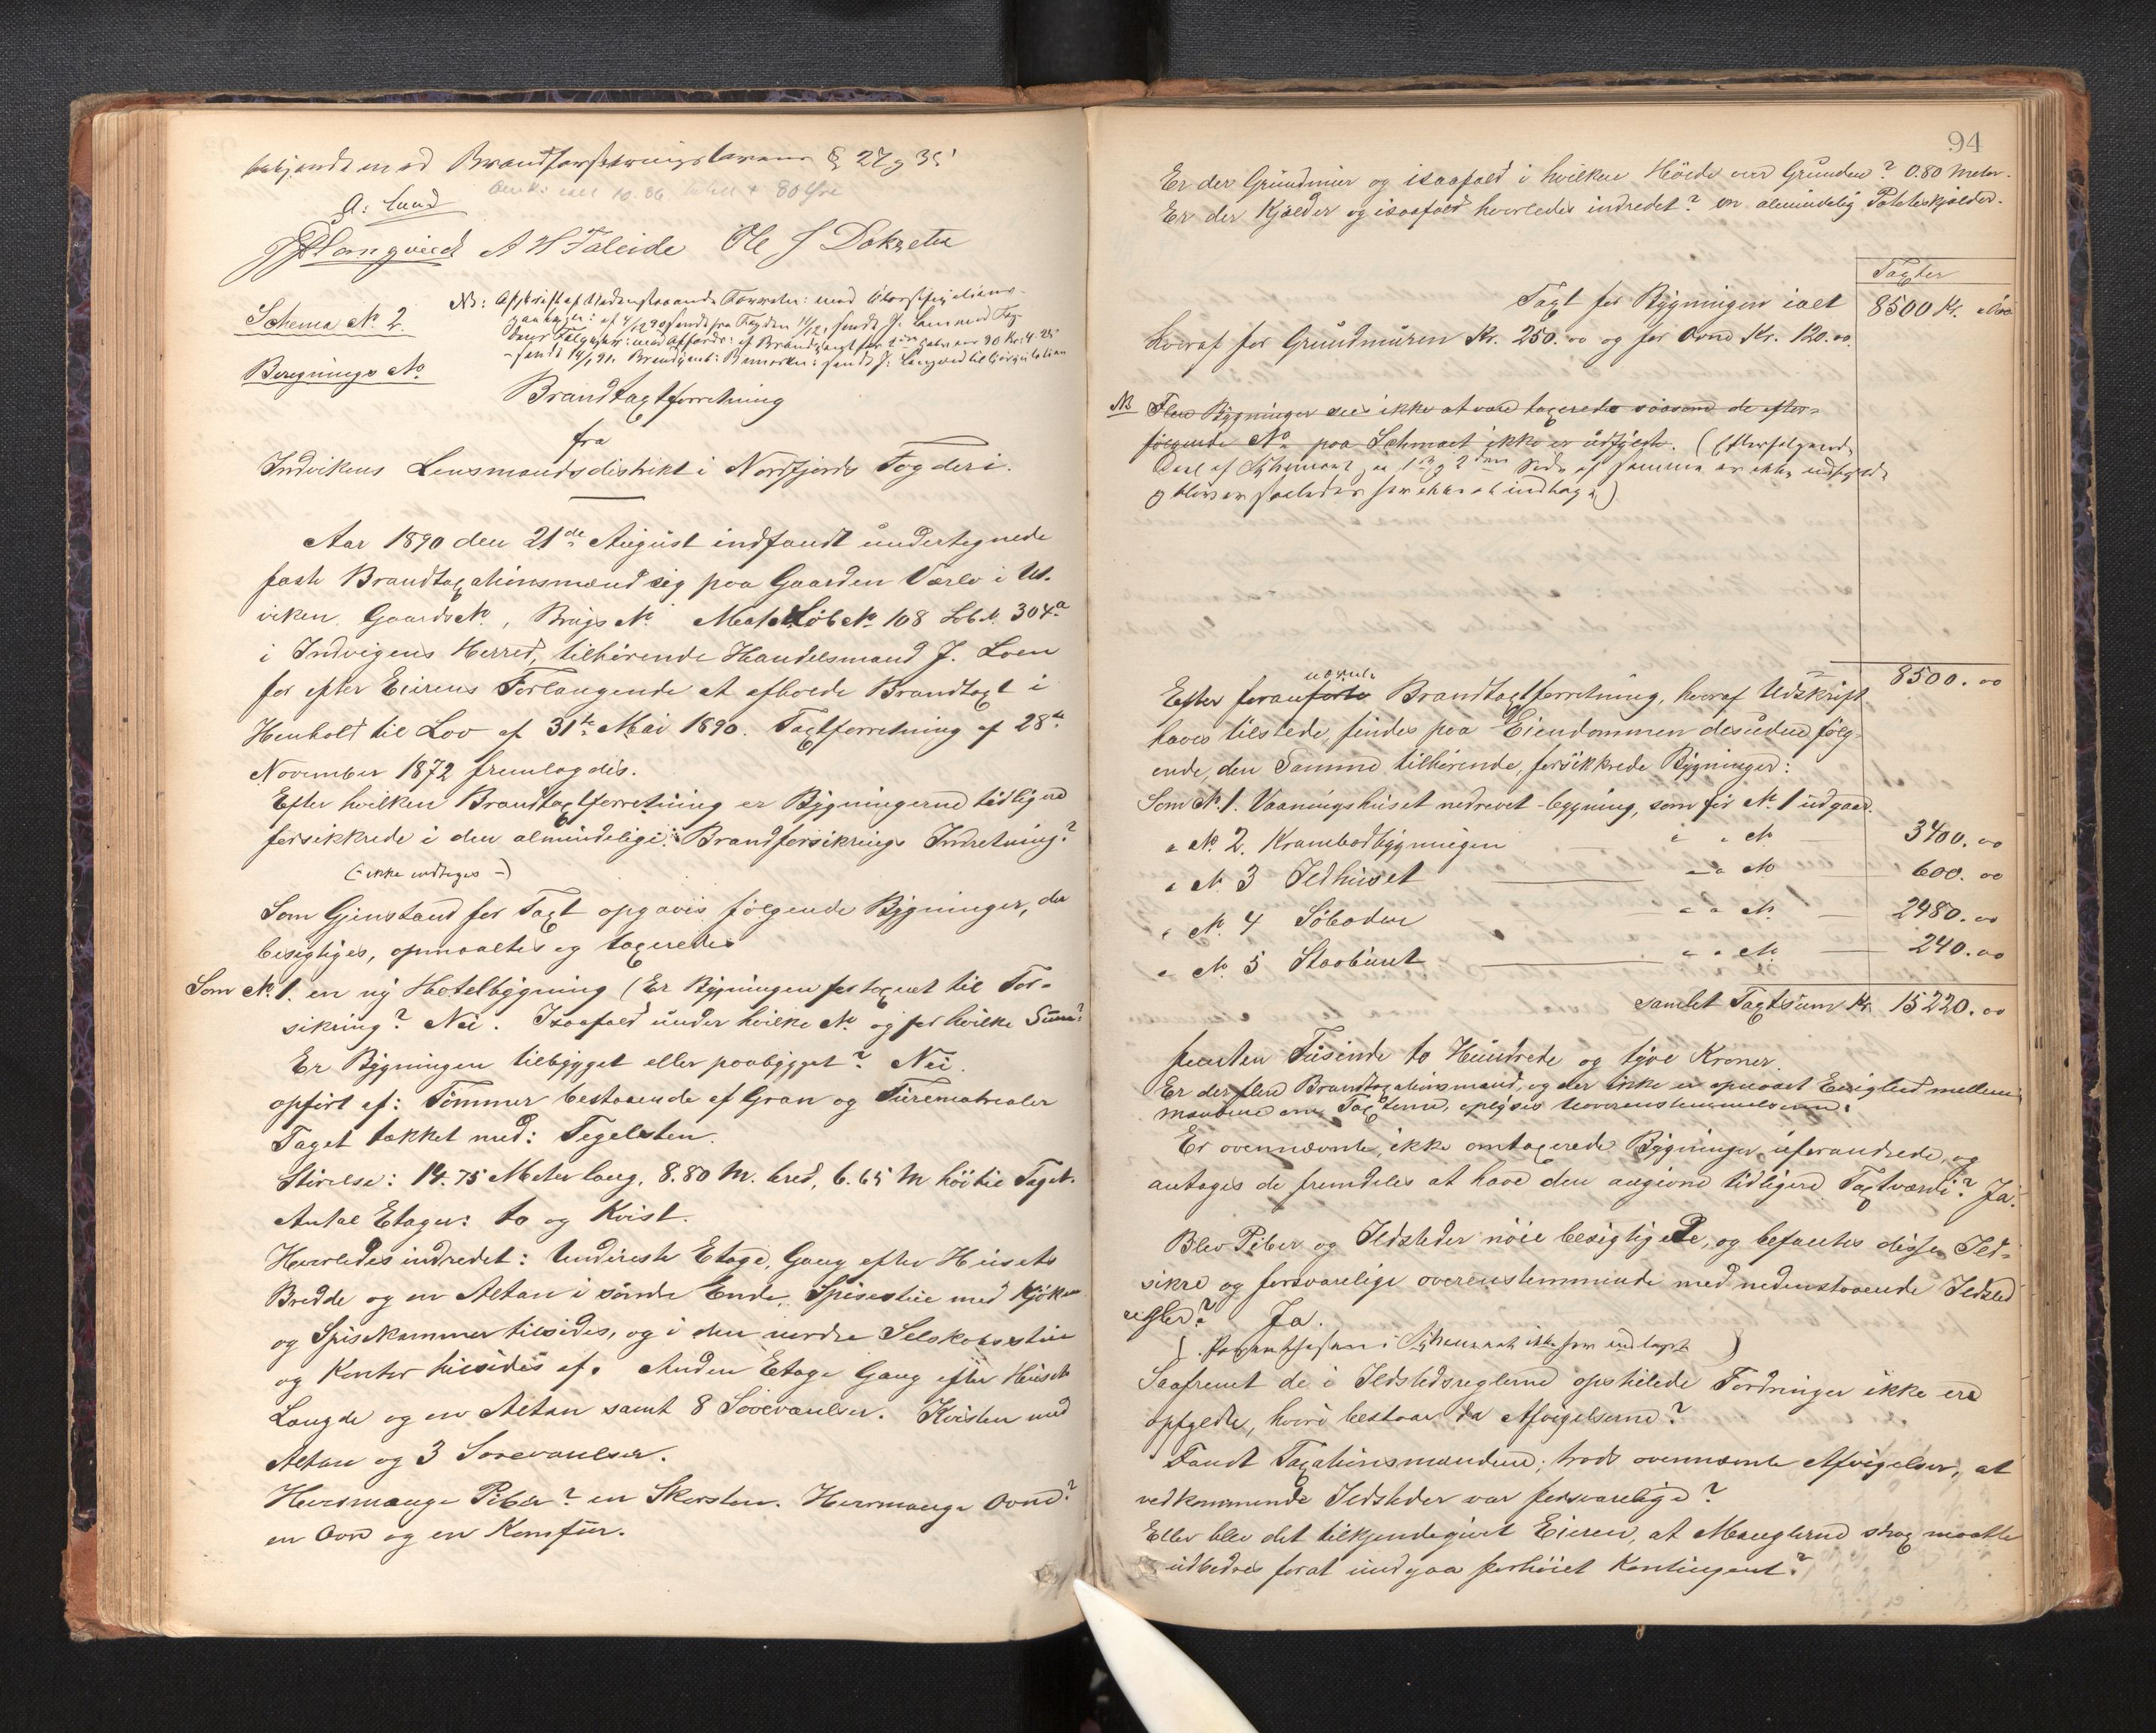 bekjendt med Brandforsikringslovens § 27 og 35
A. Lund
A H Faleide Ole J Dokseter
Schema № 2.
NB: Afskrift af nedenstaaende Forretn: med
Beregnings №
Brandtaxtforretning
fra
Indvikens Lensmandsdistrikt i Nordfjords Fogderi.
Aar 1890 den 21de August indfandt undertegnede
faste Brandtaxationsmænd sig paa Gaarden Værlo i Ut-
viken Gaards№ , Brugs№ Mat. Løb№ 108 Lb.№ 304a
i Indvigens Herred, tilhørende Handelsmand J. Loen
for efter Eierens Forlangende at afholde Brandtaxt i
Henhold til Lov af 31te Mai 1890. Taxtforretning af 28de
November 1872 fremlagdes.
Efter hvilken Brandtaxtforretning er Bygningerne tidligere
forsikkrede i den almindelige Brandforsikrings Indretning?
(- ikke indtages -)
Som Gjenstand for Taxt opgaves følgende Bygninger, der
besigtiges, opmaaltes og taxeredes
Som №1. en ny Hotelbygning (Er Bygningen før taxeret til For-
sikring? Nei. Isaafald under hvilke № og for hvilke Sum?
Er Bygningen tilbygget eller paabygget? Nei.
opført af: Tømmer bestaaende af Gran og Furematrialer
Taget tækket med: Tegelsten.
Størelse: 14.75 Meter lang, 8.80 M. bred, 6.65 M høi til Taget.
Antal Etager: to og Kvist.
Hvorledes indredet: Underste Etage, Gang efter Husets
Bredde og en Altan i søndre Ende, Spisestue med Kjøken
og Spisekammer tilsides, og i den nordre Selskabsstue
og Kontor tilsides af. Anden Etage Gang efter Husets
Længde og en Altan samt 8 Soveværelser. Kvisten med
Altan og 3 Soveværelser.
Hvormange Piber? en Skorsten. Hvormange Ovne?
en Ovn og en Komfur.
94
Er der Grundmur og isaafald i hvilken Høide over Grunden? 0.80 Meter.
Er der Kjælder og isaafald hvorledes indredet? en almindelig Poteteskjælder.
Taxter
Taxt for Bygningen ialt 8500 Kr.
hvoraf for Grundmuren Kr. 250.00 og for Ovne Kr. 120.00.
NB Flere Bygninger sees ikke at være taxerede saasom de efter-
følgende № paa Schmaet ikke er udfyldt. (Efterfølgende
Deel af Schemaet paa 1ste og 2den Side af samme er ikke udfyldt
og bliver saaledes her ikke at indtage)
8500.00
nævnte
Efter foranførte Brandtaxtforretning, hvoraf Udskrift
haves tilstede, findes paa Eiendommen desuden følg-
ende, den Samme tilhørende, forsikkrede Bygninger:
Som №1. Vaaningshuset nedrevet bygning, som før №1 udgaar.
" № 2. Krambodbygningen " " № 3400.00
" № 3 Ildhuset " " № 600.00
" № 4 Søboden " " № 2480.00
" № 5 Stabburet " " № 240.00
samlet Taxtsum Kr. 15220.00
femten Tusinde to Hundrede og tyve Kroner.
Er der flere Brandtaxationsmænd, og der ikke er opnaaet Enighed mellem
mændene om Taxterne, oplyses Uoverensstemmelserne:
Er ovennævnte, ikke omtaxerede Bygninger uforandrede, og
antages de fremdeles at have den angivne tidligere Taxtværdi? Ja.
Blev Piber og Ildsteder nøie besigtigede, og befantes disse Ild-
sikre og forsvarlige overensstemmende med nedenstaaende Ildsted
regler? Ja.
(Parenthesen i Schemaet ikke her indtaget)
Saafremt de i Ildstedsreglerne opstillede Fordringer ikke ere
opfyldte, hvori bestaar da Afvigelserne?
Fandt Taxationsmændene, trods ovennævnte Afvigelser, at
vedkommende Ildsteder var forsvarlige?
Eller blev det tilkjendegivet Eieren, at Manglerne strax maatte
udbedres forat undgaa forhøiet Kontingent?